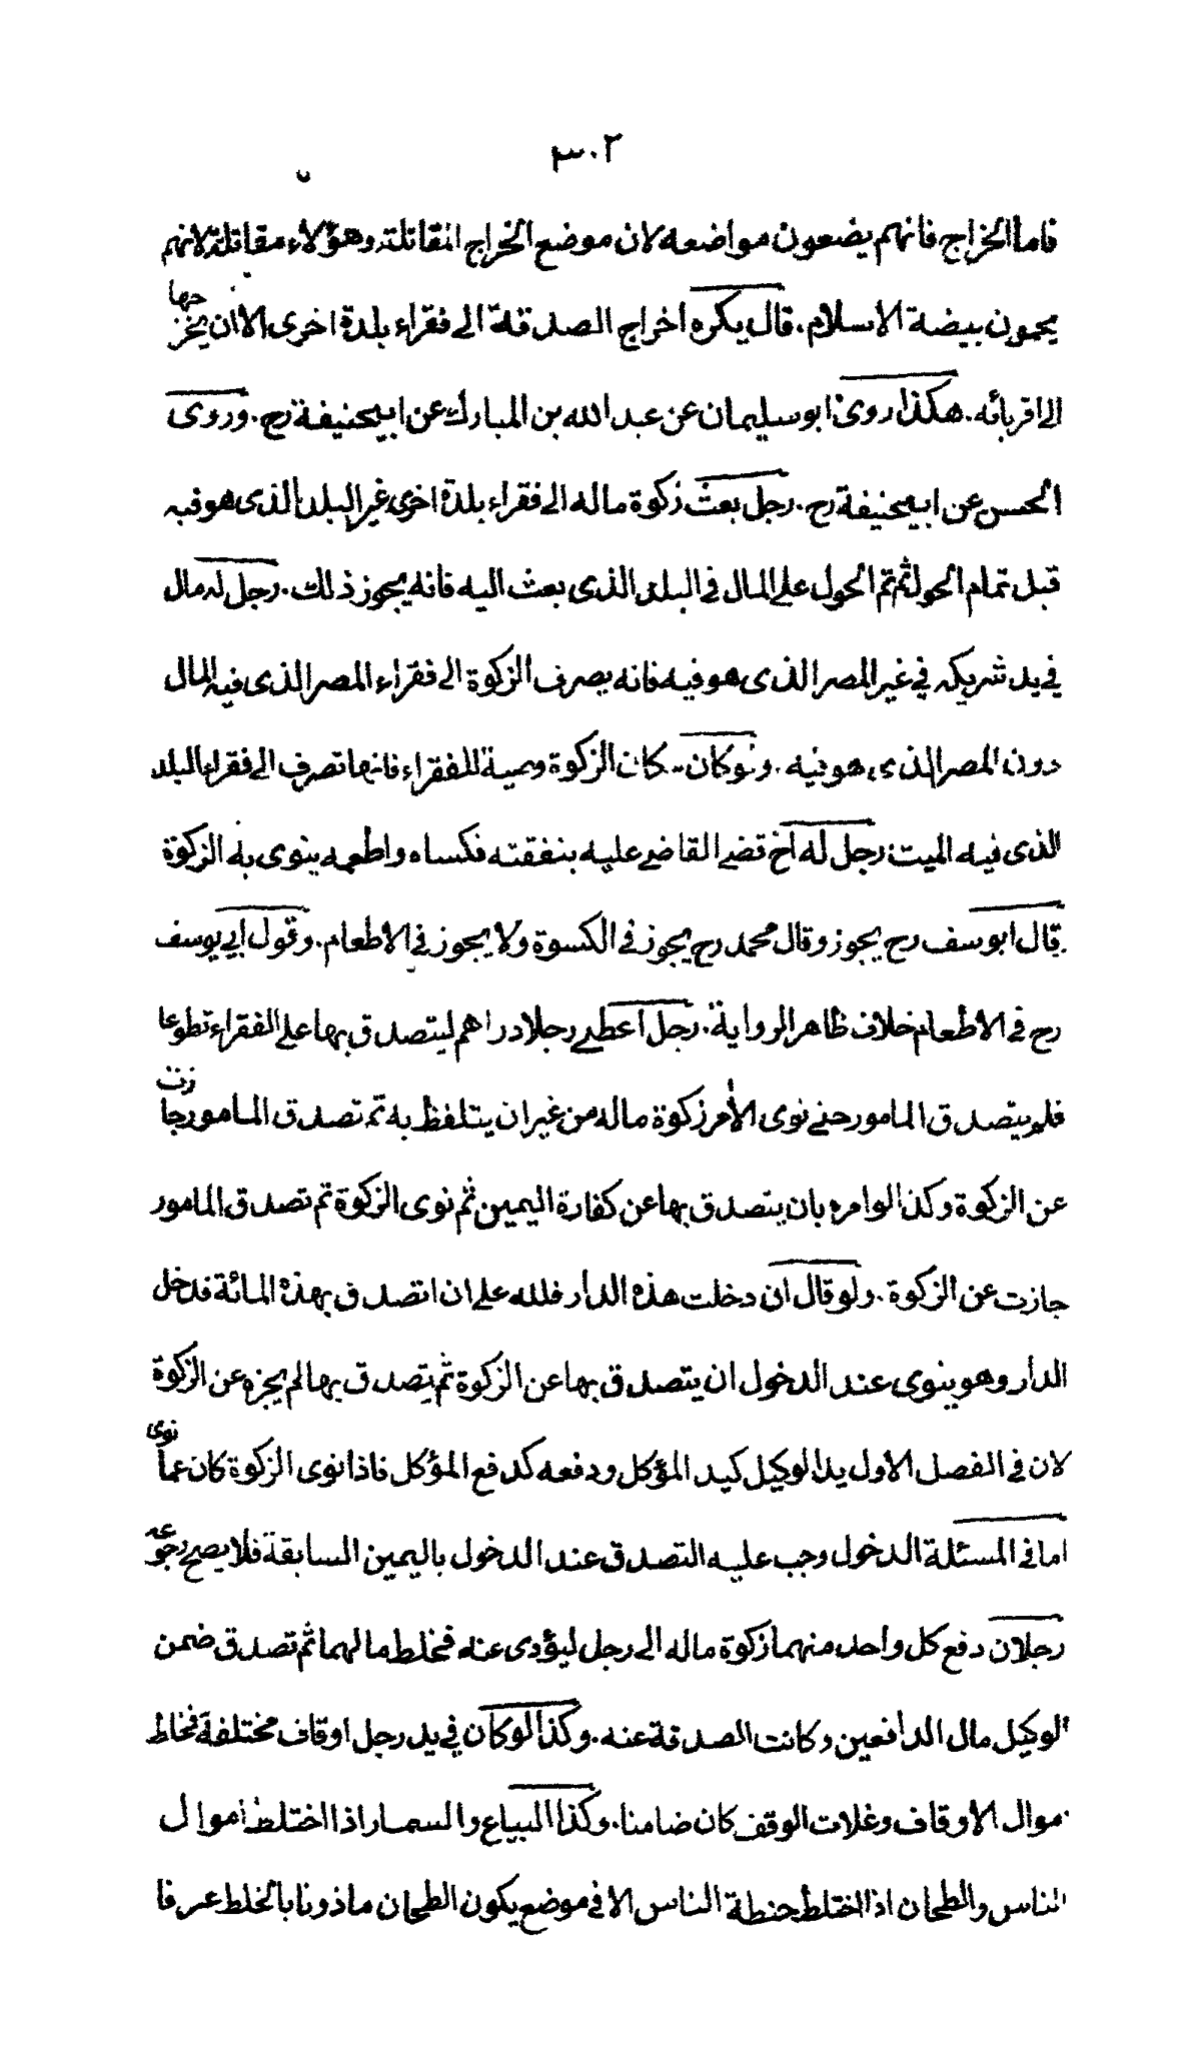 ٣٠٢
فاما الخراج فانهم يضعون مواضعه لان موضع الخراج المقاتلة وهؤلاء مقاتلة لانهم
يحمون بيضة الاسلام. قال يكره اخراج الصدقة الى فقراء بلدة اخرى الا ان يخرجها
الى اقربائه. هكذا روى ابو سليمان عن عبد الله بن المبارك عن ابيحنيفة رح. وروى
الحسن عن ابيحنيفة رح. رجل بعث زكوة ماله الى فقراء بلدة اخرى غير البلد الذى هو فيه
قبل تمام الحول ثم تم الحول على المال فى البلد الذى بعث اليه فانه يجوز ذلك. رجل له مال
فى يد شريكه فى غير المصر الذى هو فيه فانه يصرف الزكوة الى فقراء المصر الذى فيه المال
دون المصر الذى هو فيه. ولو كان كانت الزكوة وصية للفقراء فانها تصرف الى فقراء البلد
الذى فيه الميت رجل له اخ قضى القاضى عليه بنفقته فكساه واطعمه ينوى به الزكوة
قال ابو يوسف رح يجوز وقال محمد رح يجوز فى الكسوة ولا يجوز فى الاطعام. وقول ابى يوسف
رح فى الاطعام خلاف ظاهر الرواية. رجل اعطى رجلا دراهم ليتصدق بها على الفقراء تطوعا
فلم يتصدق المامور حتى نوى الأمر زكوة ماله من غير ان يتلفظ به ثم تصدق المامور جازت
عن الزكوة وكذا لو امره بان يتصدق بها عن كفارة اليمين ثم نوى الزكوة ثم تصدق المامور
جازت عن الزكوة. ولو قال ان دخلت هذه الدار فلله على ان اتصدق بهذه المائة فدخل
الدار وهو ينوى عند الدخول ان يتصدق بها عن الزكوة ثم يتصدق بها لم يجزه عن الزكوة
لان فى الفصل الاول يد الوكيل كيد المؤكل ودفعه كدفع المؤكل فاذا نوى الزكوة كان عما نوى
اما فى المسئلة الدخول وجب عليه التصدق عند الدخول باليمين السابقة فلا يصح رجوعه
رجلان دفع كل واحد منهما زكوة ماله الى رجل ليؤدى عنه فخلط مالهما ثم تصدق ضمن
الوكيل مال الدافعين وكانت الصدقة عنه. وكذا لو كان فى يد رجل اوقاف مختلفة فخلط
اموال الاوقاف وغلات الوقف كان ضامنا. وكذا البياع والسمسار اذا اختلط اموال
الناس والطحان اذا اختلط حنطة الناس الا فى موضع يكون الطحان ماذونا بالخلط عرفا